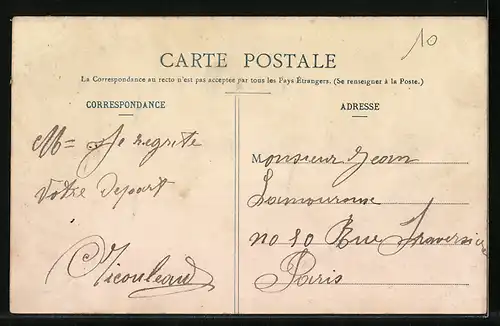 10
CARTE POSTALE
La Correspondance au recto n'est pas acceptée par tous les Pays Étrangers. (Se renseigner à la Poste.)
CORRESPONDANCE
ADRESSE
M= Je regrite
Votre depart
Monsieur Jean
Lamourouse
no 10 Rue Traversière
Paris